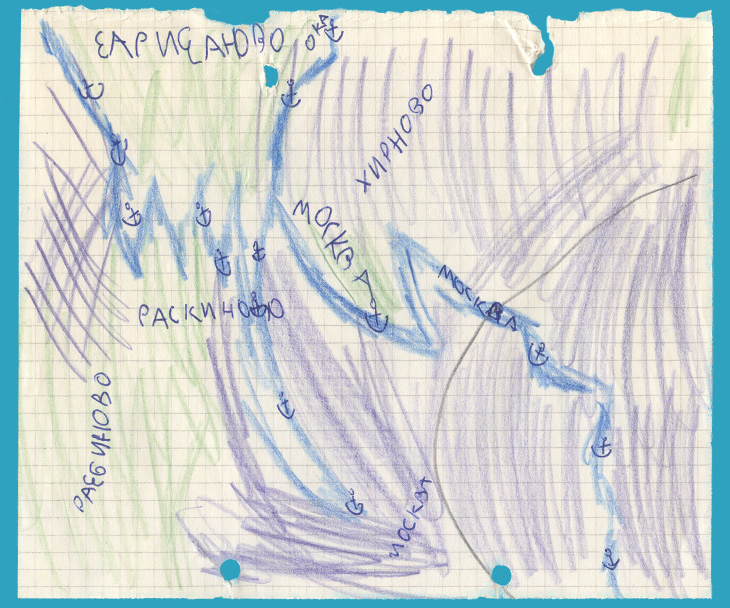 ЕАРИЩАНОВО
ОКА
ХИРНОВО
МОСКВА
МОСКВА
РАСКИНОВО
РАЕБИНОВО
МОСКВА